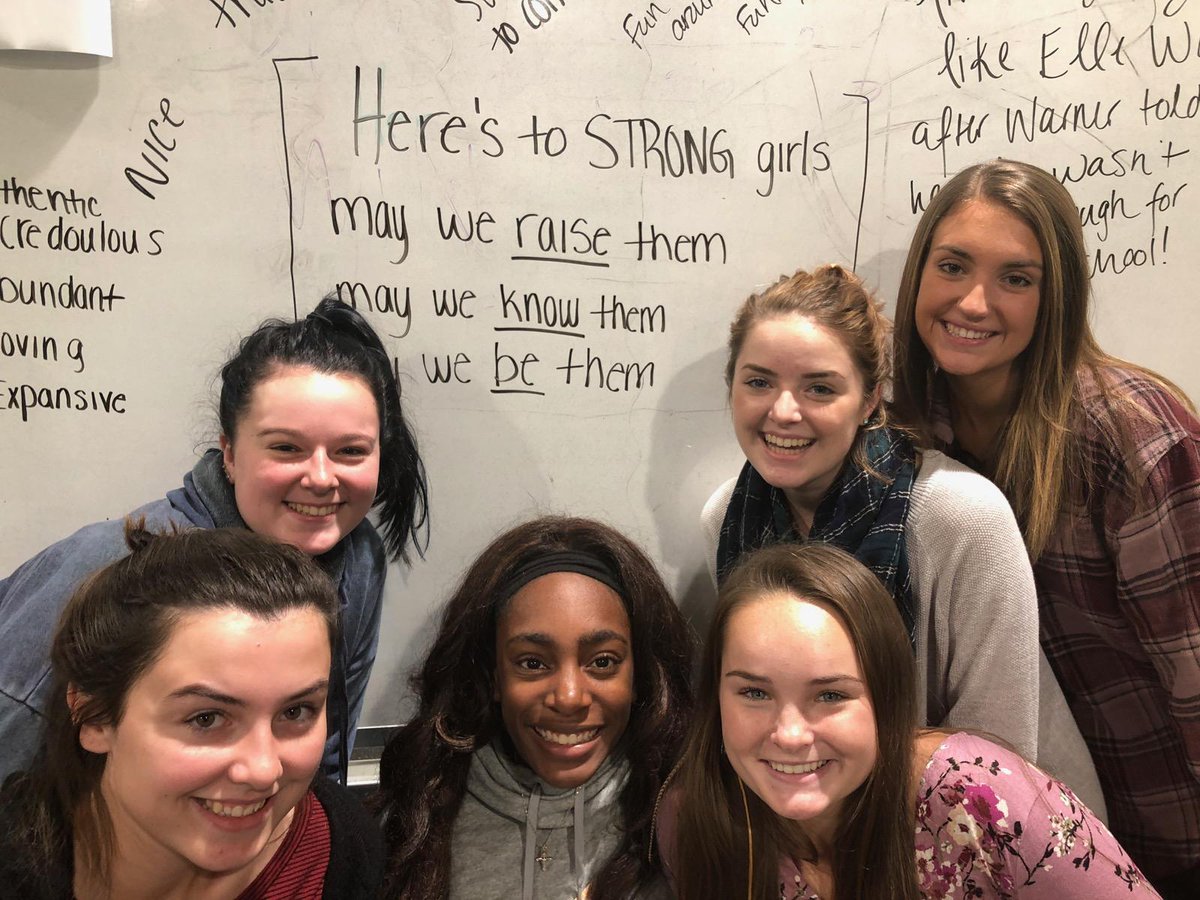 to con
Fun
around
Fun
Nice
thentic
credoulous
bundant
oving
Expansive
Here's to STRONG girls
may we raise them
may we know them
we be them
like Elle W
after Warner told
wasn't
ugh for
hool!